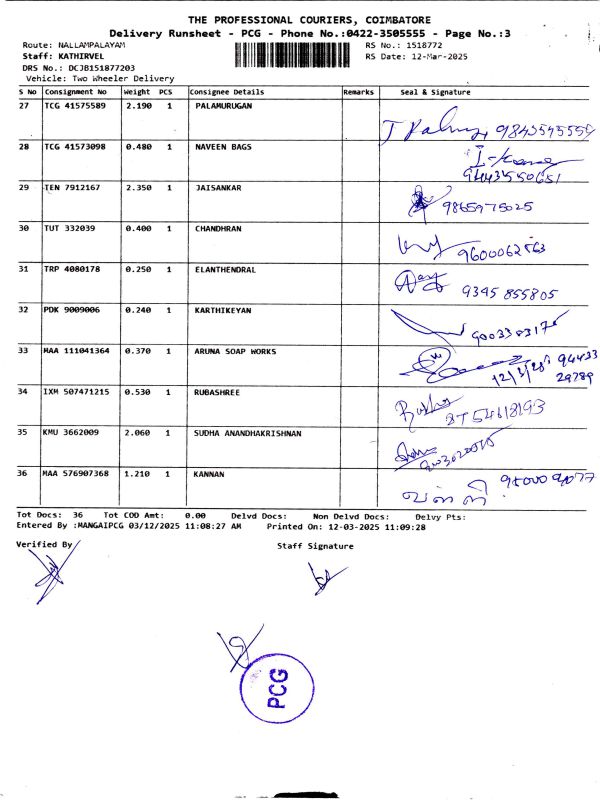 THE PROFESSIONAL COURIERS, COIMBATORE
Delivery Runsheet - PCG - Phone No.:0422-3505555 - Page No.:3
Route: NALLAMPALAYAM RS No.: 1518772
Staff: KATHIRVEL RS Date: 12-Mar-2025
DRS No.: DCJB151877203
Vehicle: Two Wheeler Delivery
S No Consignment No Weight PCS Consignee Details Remarks Seal & Signature
27 TCG 41575589 2.190 1 PALAMURUGAN
9843545559
28 TCG 41573098 0.480 1 NAVEEN BAGS
9443550651
29 TEN 7912167 2.350 1 JAISANKAR
9865975025
30 TUT 332039 0.400 1 CHANDHRAN
31 TRP 4080178 0.250 1 ELANTHENDRAL
9345 855805
32 PDK 9009006 0.240 1 KARTHIKEYAN
33 MAA 111041364 0.370 1 ARUNA SOAP WORKS
94433
29789
34 IXM 507471215 0.530 1 RUBASHREE
35 KMU 3662009 2.060 1 SUDHA ANANDHAKRISHNAN
36 MAA 576907368 1.210 1 KANNAN
Tot Docs: 36 Tot COD Amt: 0.00 Delvd Docs: Non Delvd Docs: Delvy Pts:
Entered By :MANGAIPCG 03/12/2025 11:08:27 AM Printed On: 12-03-2025 11:09:28
Verified By Staff Signature
PCG